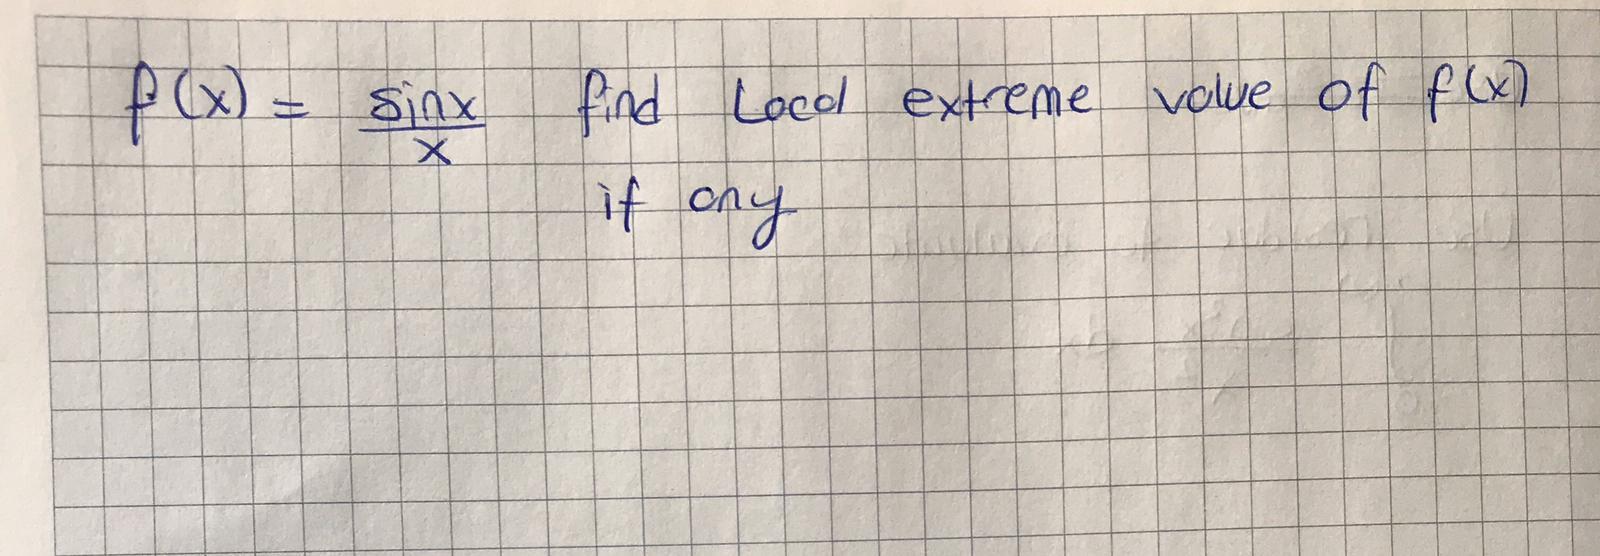 f(x) = sinx/x find Local extreme value of f(x)
if any